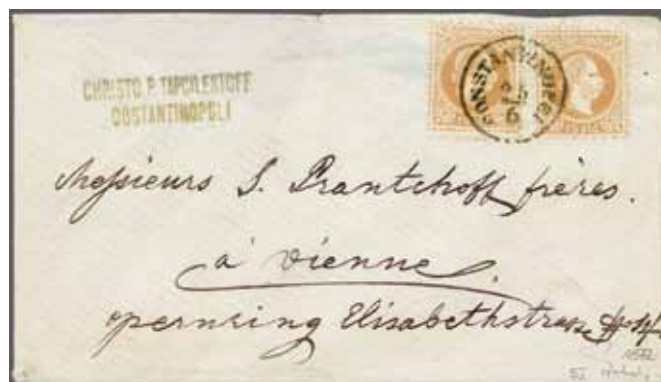 CHRISTO P. TAPCHILESTOFF
COSTANTINOPOLI
CONSTANTINOPEL
6
Messieurs S. Prantchoff frères.
à Vienne.
opernring Elisabethstrasse